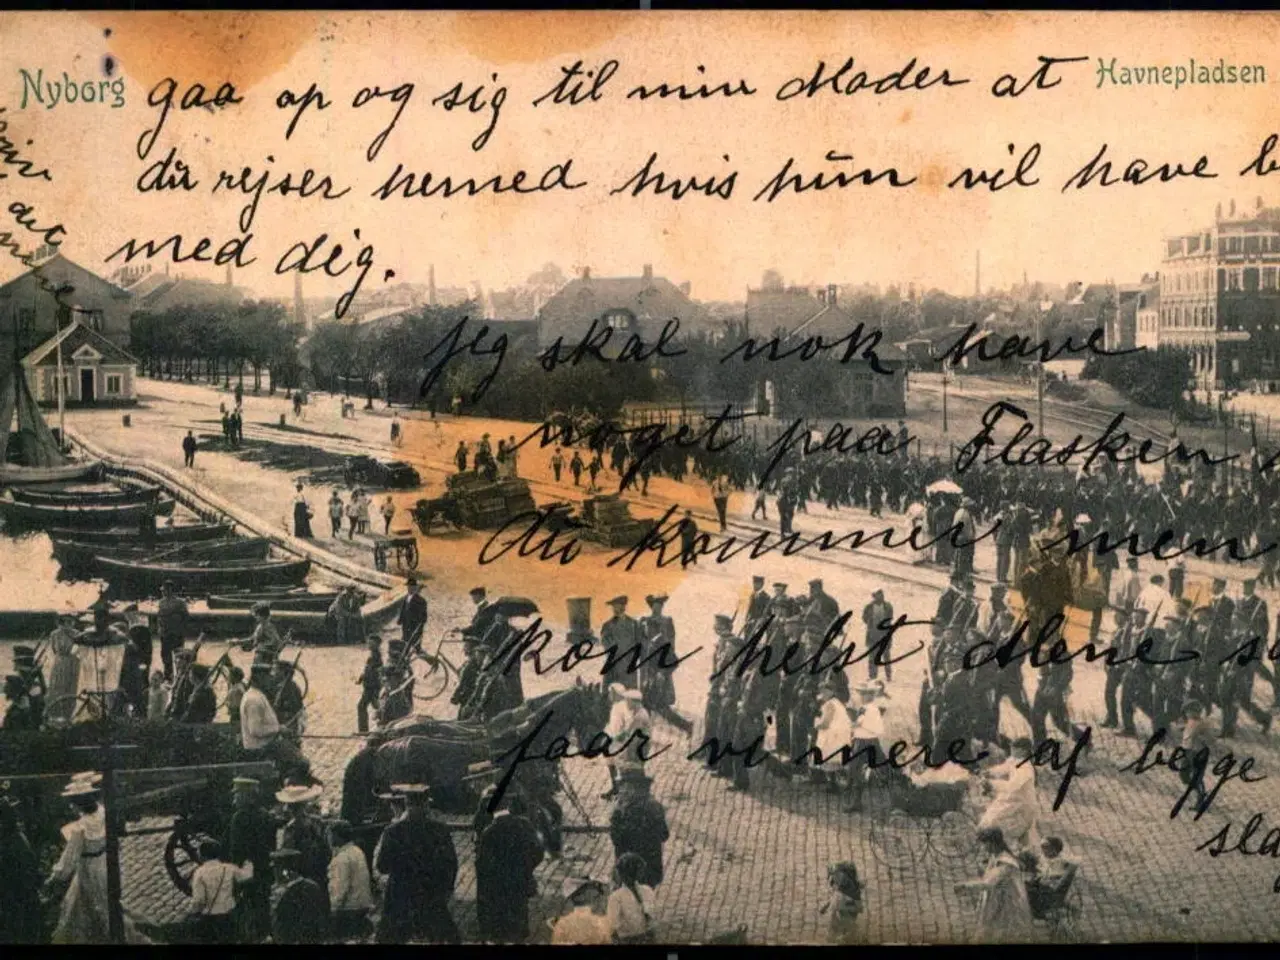 Nyborg
Havnepladsen
gaa op og sig til min Moder at
du rejser herned hvis hun vil have b
med dig.
Jeg skal nok have
noget paa Flasken
du kommer men
kom helst Alene s
faar vi mere af begge
sla
det